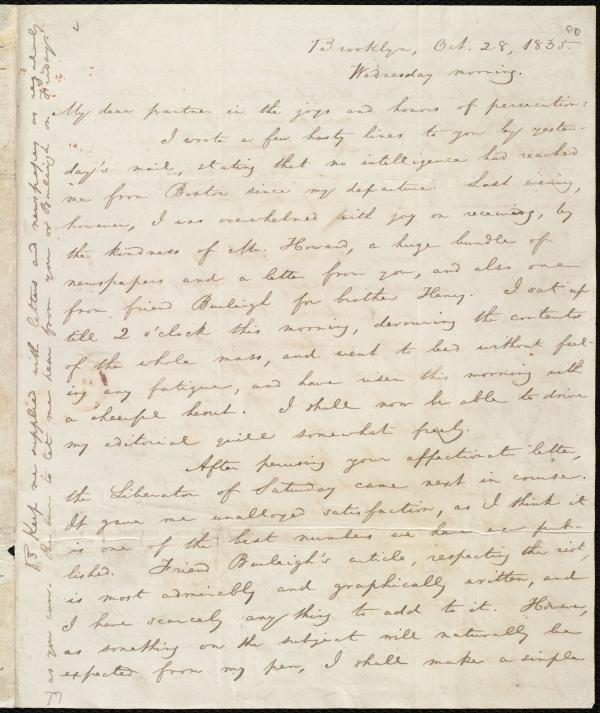 Brooklyn, Oct. 28, 1835.
Wednesday morning.
My dear partner in the joys and honors of persecution:
I wrote a few hasty lines to you by yester-
day's mail, stating that no intelligence had reached
me from Boston since my departure. Last evening,
however, I was overwhelmed with joy on receiving, by
the kindness of Mr. Howard, a huge bundle of
newspapers and a letter from you, and also one
from friend Burleigh for brother Henry. I sat up
till 2 o'clock this morning, devouring the contents
of the whole mass, and went to bed without feel-
ing any fatigue, and have risen this morning with
a cheerful heart. I shall now be able to drive
my editorial quill somewhat freely.
After perusing your affectionate letter,
the Liberator of Saturday came next in course.
It gave me unalloyed satisfaction, as I think it
is one of the best numbers we have ever pub-
lished. Friend Burleigh's article, respecting the riot,
is most admirably and graphically written, and
I have scarcely any thing to add to it. However,
as something on the subject will naturally be
expected from my pen, I shall make a simple
Keep me supplied with letters and newspapers as regularly
as you can. Be sure to let me hear from you or Burleigh on Friday.